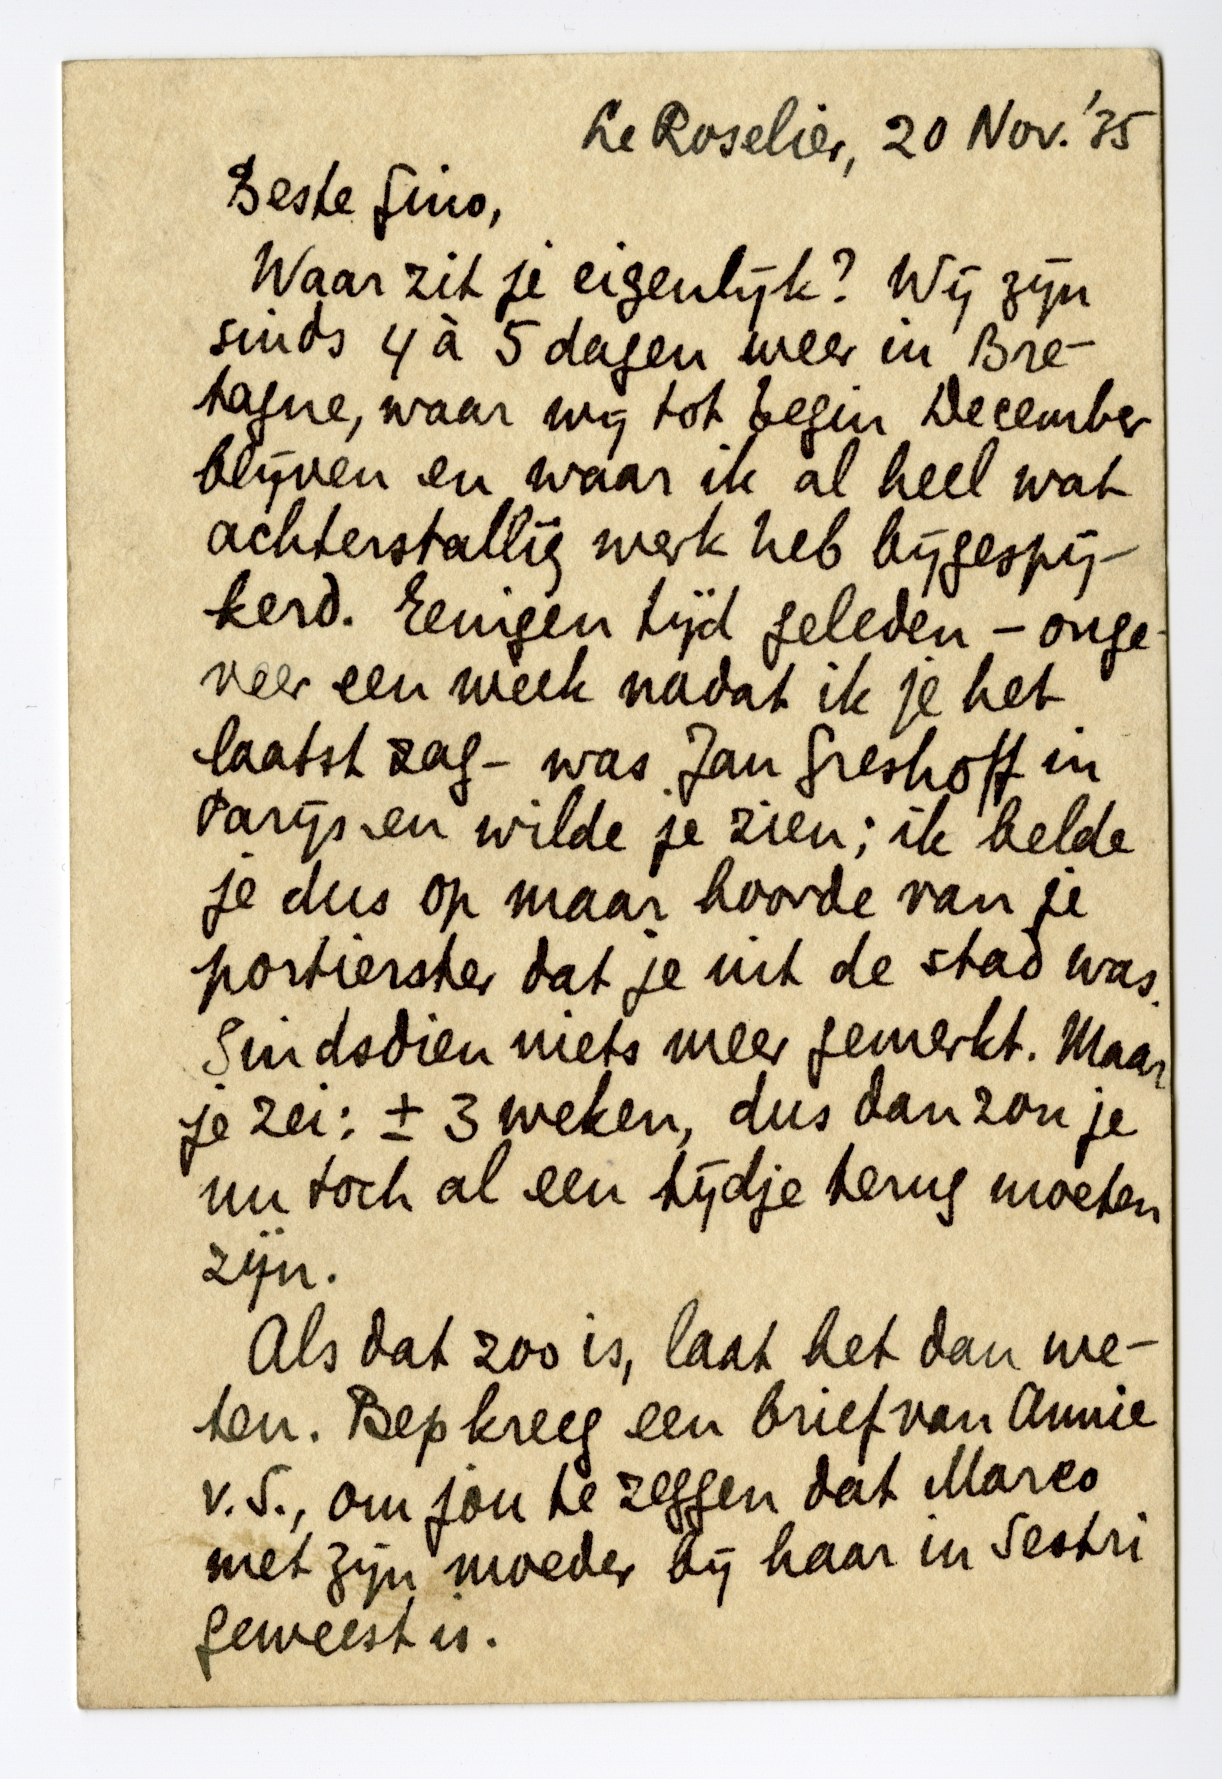 Le Roselier, 20 Nov. '35
Beste Gino,
Waar zit je eigenlijk? Wij zijn
sinds 4 à 5 dagen weer in Bre-
tagne, waar wij tot begin December
blijven en waar ik al heel wat
achterstallig werk heb bijgespij-
kerd. Eenigen tijd geleden – onge-
veer een week nadat ik je het
laatst zag – was Jan Greshoff in
Parijs en wilde je zien; ik belde
je dus op maar hoorde van je
portierster dat je uit de stad was.
Sindsdien niets meer gemerkt. Maar
je zei: ± 3 weken, dus dan zou je
nu toch al een tijdje terug moeten
zijn.
Als dat zoo is, laat het dan we-
ten. Bep kreeg een brief van Annie
v. S., om jou te zeggen dat Marco
met zijn moeder bij haar in Sestri
geweest is.